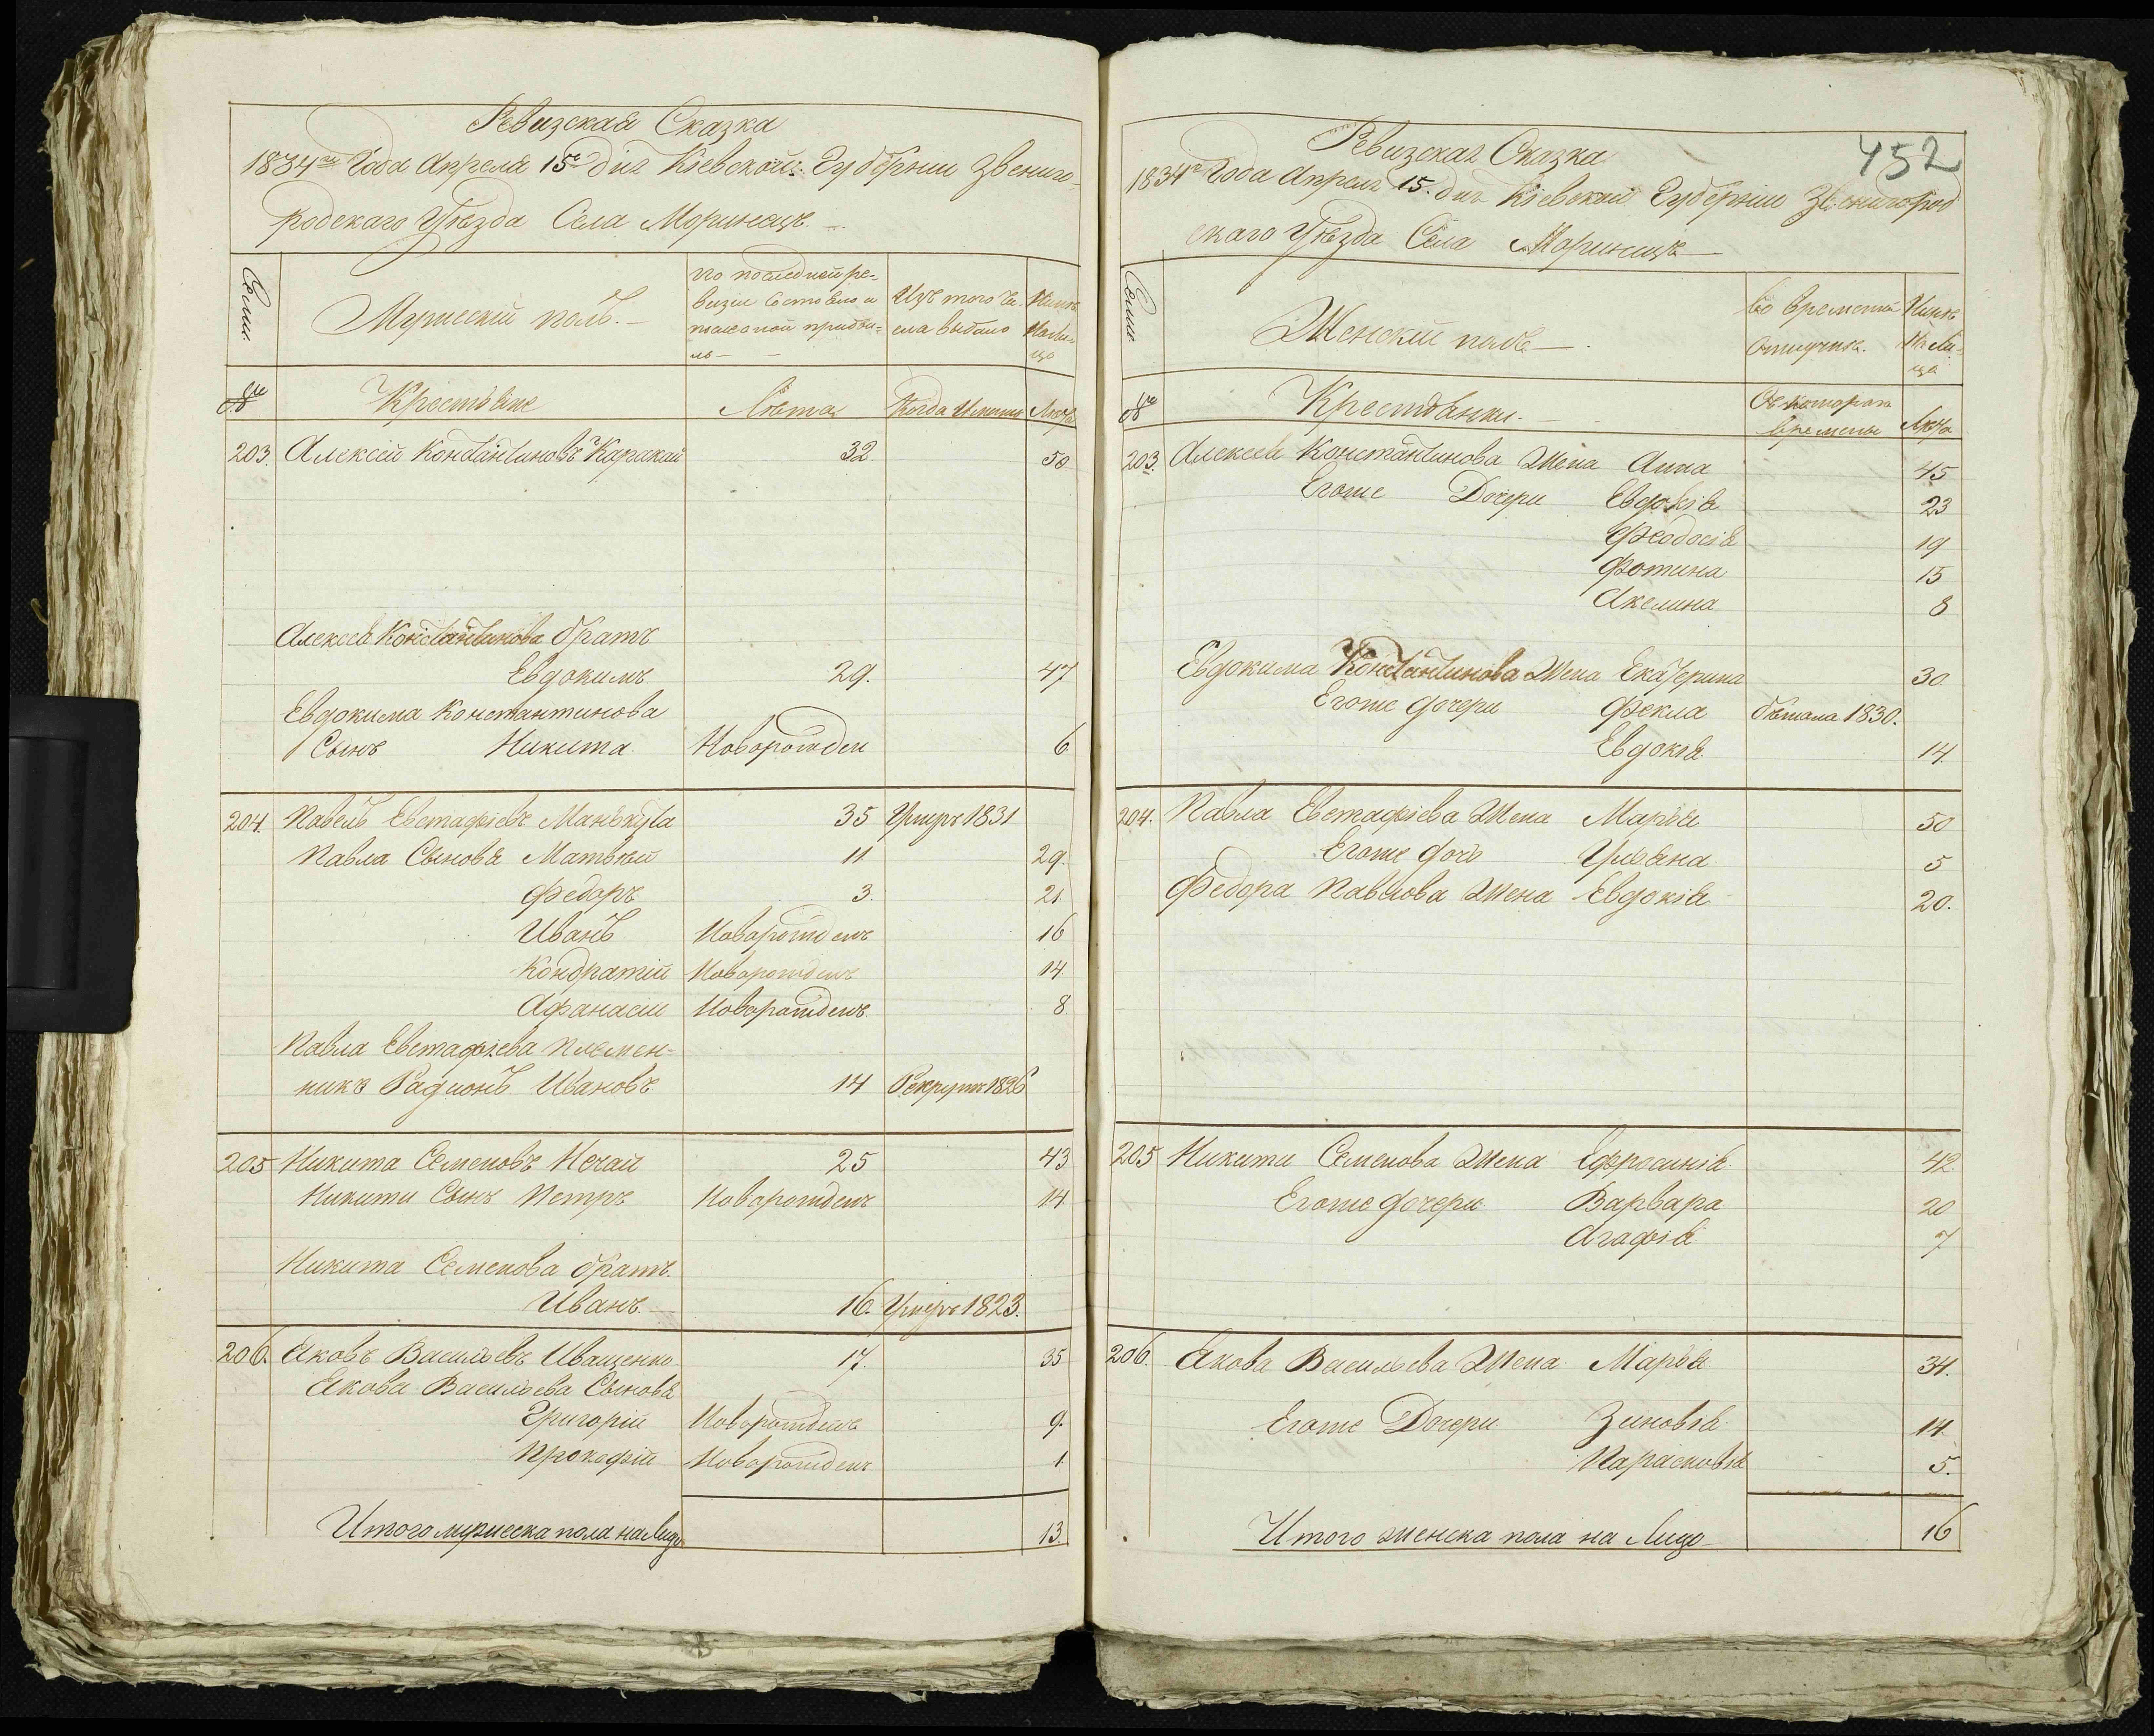 Ревизская Сказка
1834го Года Апреля 15го дня Кіевской Губерніи Звениго-
родскаго Уѣзда Села Моринецъ
Семьи.
Мужескій полъ.
по последней ре-
визіи состояло и
после ной прибы-
ло
Изъ того чи-
сла выбыло
Нынѣ
На ли-
цо
№
Крестьяне
Лѣта
Когда Именно
Лѣта
203. Алексѣй Константиновъ Каракай 32. 50.
Алексея Константинова братъ
Евдокимъ 29. 47
Евдокима Константинова
Сынъ Никита Новорожден 6
204. Павелъ Евстафіевъ Манькута 35 Умеръ 1831
Павла Сыновья Матвѣй 11. 29.
Федоръ 3. 21.
Иванъ Новорожденъ 16
Кондратій Новорожденъ 14
Афанасій Новорожденъ 8.
Павла Евстафіева племен-
никъ Радионъ Ивановъ 14 Рекрутъ 1826
205 Никита Семеновъ Нечай 25 43
Никиты Сынъ Петръ Новорожденъ 14
Никита Семенова братъ
Иванъ 16. Умеръ 1823.
206. Яковъ Васильевъ Иващенко 17. 35
Якова Васильева Сыновья
Григорій Новорожденъ 9.
Прокофій Новорожденъ 1
Итого мужеска пола на Лицо 13.
452
Ревизская Сказка
1834го Года Апреля 15. дня Кіевской Губерніи Звенигород
скаго Уѣзда Села Моринецъ
Семьи
Женскій полъ
Во временной
Отлучкѣ.
Нынѣ
На Ли-
цо
№
Крестьянки.
Съ котораго
времены
Лѣта
203. Алексея Константинова Жена Анна 45
Егоже Дочери Евдокія 23
Феодосія 19
Фотина 15
Акелина 8
Евдокима Константинова Жена Екатерина 30
Егоже дочери Фекла бѣжала 1830.
Евдокія 14.
204. Павла Евстафіева Жена Марья 50
Егоже дочь Ульяна 5
Федора Павлова Жена Евдокія 20.
205 Никиты Семенова Жена Ефросинія 42
Егоже дочери Варвара 20
Агафія 7
206. Якова Васильева Жена Марья 34.
Егоже Дочери Зиновія 14
Парасковія 5.
Итого женска пола на Лицо 16